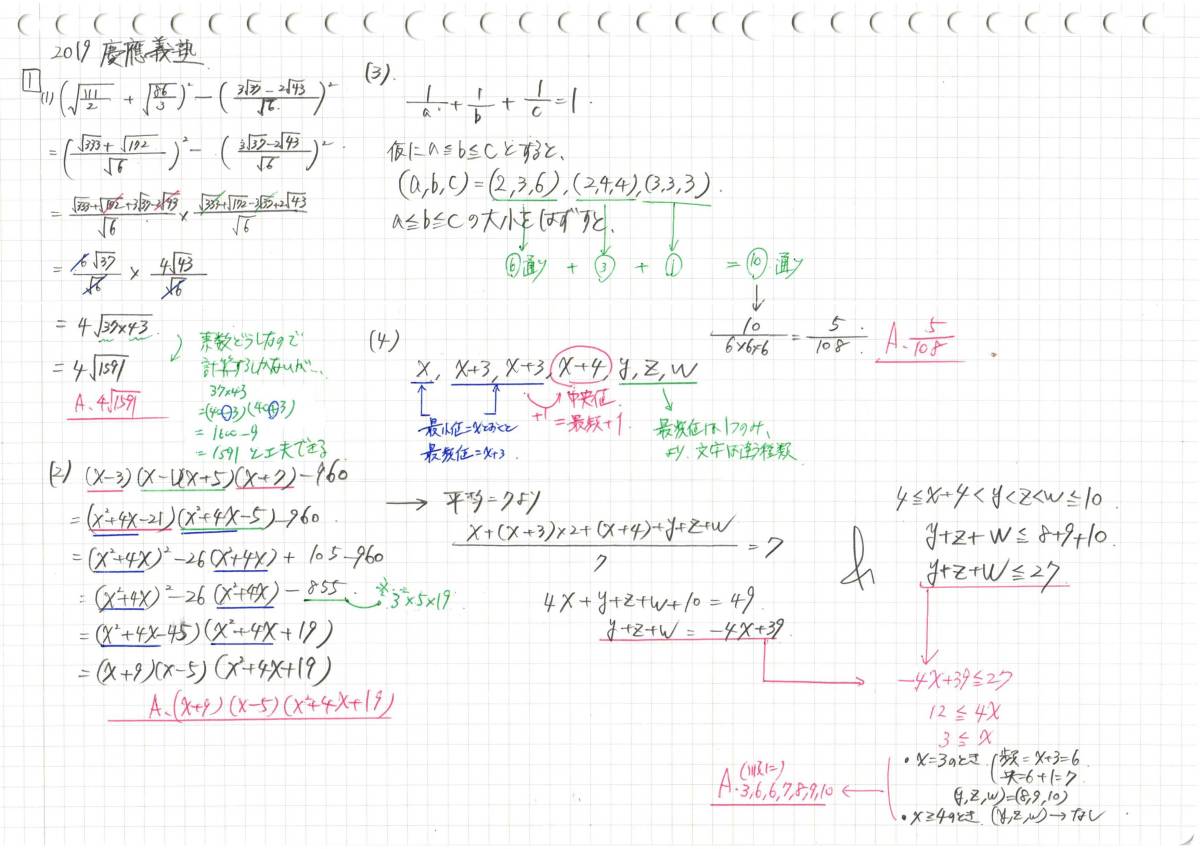 2019 慶應義塾
1
(1) (√111/2 + √86/3)² − (3√37 − 2√43/√6)²
= (√333 + √172/√6)² − (3√37 − 2√43/√6)²
= √333+√172+3√37−2√43/√6 × √333+√172−3√37+2√43/√6
= 6√37/√6 × 4√43/√6
= 4√37×43
= 4√1591
A. 4√1591
素数どうしなので
計算するしかないが…、
37×43
=(40−3)(40+3)
= 1600−9
= 1591 と工夫できる
(2) (x−3)(x−1)(x+5)(x+7)−960
= (x²+4x−21)(x²+4x−5)−960
= (x²+4x)²−26(x²+4x)+105−960
= (x²+4x)²−26(x²+4x)−855
※3²×5×19
= (x²+4x−45)(x²+4x+19)
= (x+9)(x−5)(x²+4x+19)
A. (x+9)(x−5)(x²+4x+19)
(3).
1/a + 1/b + 1/c = 1.
仮にa≦b≦cとすると、
(a,b,c)=(2,3,6),(2,4,4),(3,3,3).
a≦b≦cの大小をはずすと、
⑥通り + ③ + ① = ⑩通り
10/6×6×6 = 5/108.
A. 5/108
(4)
x, x+3, x+3, x+4, y, z, w
最小値=xとおくと
最頻値=x+3
+1
中央値
=最頻+1.
最頻値は1つのみ、
より、文字は違う種数
→ 平均=7より
x+(x+3)×2+(x+4)+y+z+w/7 = 7
4x+y+z+w+10=49
y+z+w = −4x+39
&
4≦x+4<y<z<w≦10
y+z+w≦8+9+10.
y+z+w≦27
−4x+39≦27
12≦4x
3≦x
・x=3のとき (最頻=x+3=6
中央=6+1=7
(y,z,w)=(8,9,10)
・x≧4のとき (y,z,w)→なし
(順に)
A. 3,6,6,7,8,9,10